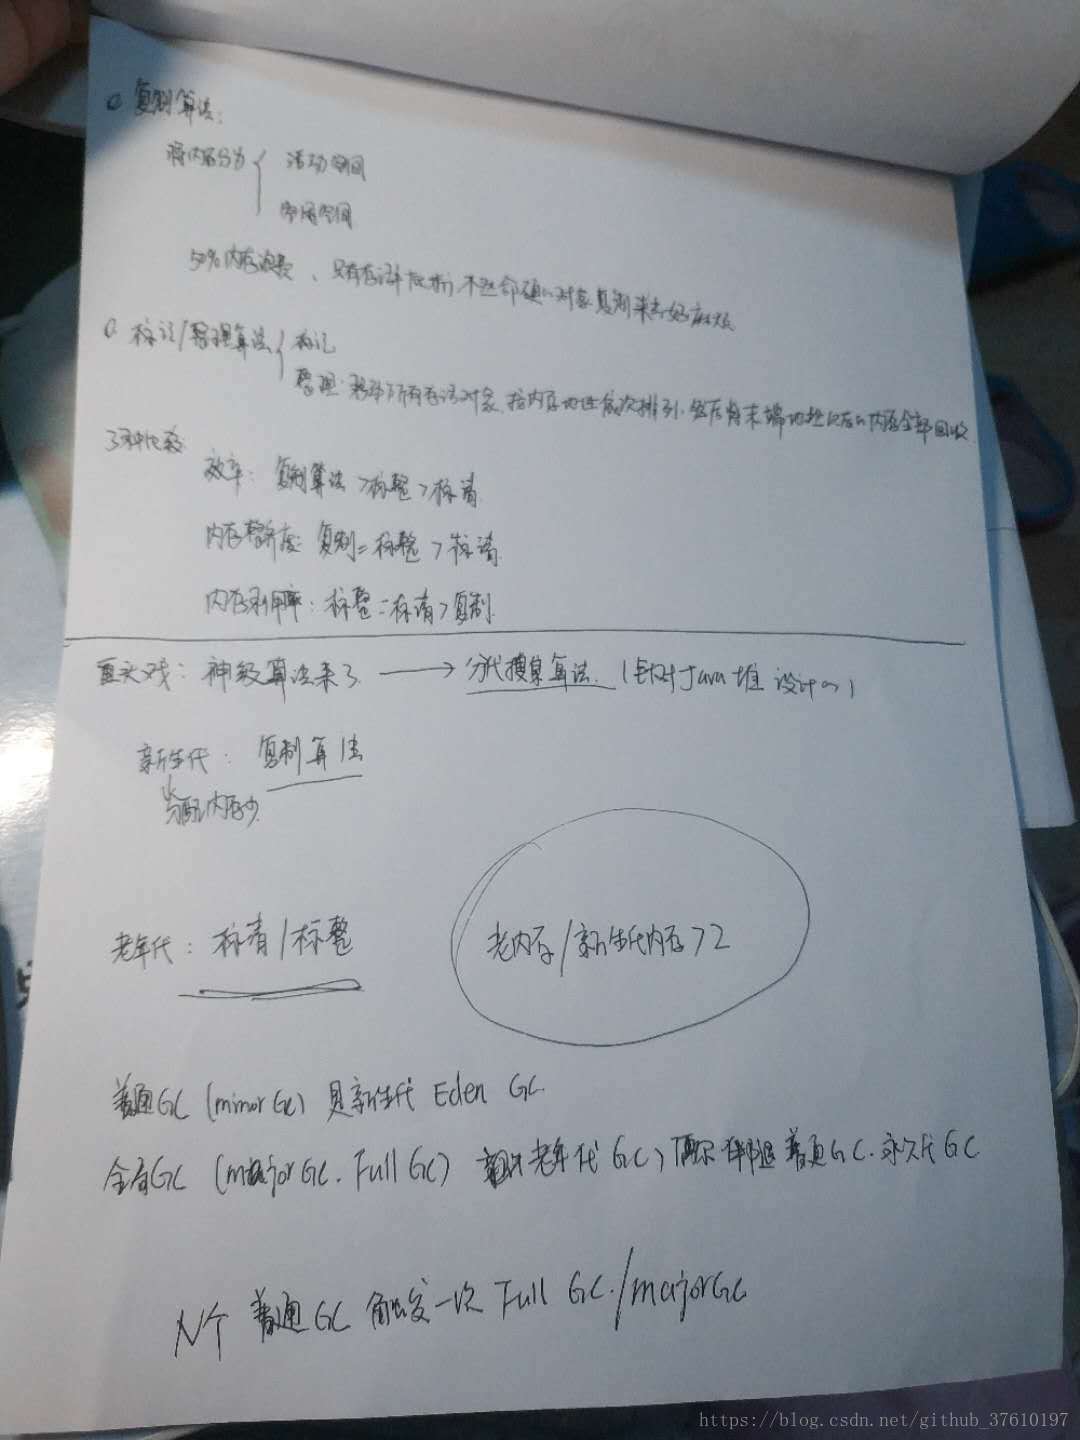 复制算法:
将内存分为 { 活动空间
空闲空间
50%内存浪费、只有存活率低才行,不然命硬的对象复制来去好麻烦
标记/整理算法 { 标记
整理:移动所有存活对象,按内存地址依次排列,然后将末端地址以后的内存全部回收.
3种比较
效率: 复制算法 >标整 >标清
内存整齐度: 复制=标整 >标清.
内存利用率: 标整=标清>复制.
重头戏: 神级算法来了 → 分代搜集算法. (针对Java堆 设计的)
新生代: 复制算法
分配内存少.
老年代: 标清/标整
老内存/新生代内存>2
普通GC (minor GC) 是新生代 Eden GC.
全局GC (major GC. Full GC) 老年代GC, 偶尔伴随普通GC.永久代GC
N个 普通GC 触发一次 Full GC./majorGC
https://blog.csdn.net/github_37610197